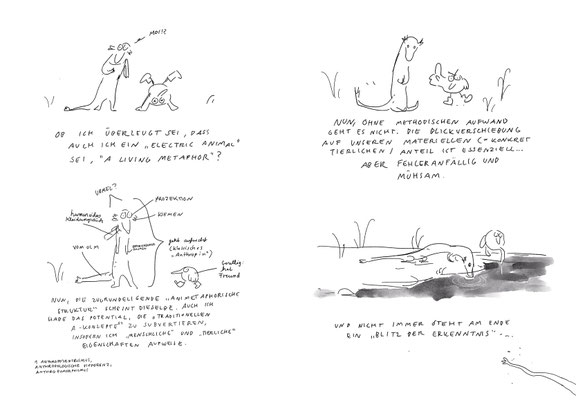 MOI??
OB ICH ÜBERZEUGT SEI, DASS
AUCH ICH EIN „ELECTRIC ANIMAL"
SEI, "A LIVING METAPHOR"?
PROJEKTION
KIEMEN
VOM OLM
geht aufrecht
(klassisches
„Anthropin")
hat
Freund
NUN, DIE ZUGRUNDELIEGENDE „ANIMETAPHORISCHE
STRUKTUR" SCHEINT DIESELBE. AUCH ICH
HABE DAS POTENTIAL, DIE „TRADITIONELLEN
A-KONZEPTE¹" ZU SUBVERTIEREN,
INSOFERN ICH „MENSCHLICHE" UND „TIERLICHE"
EIGENSCHAFTEN AUFWEISE.
1 ANTHROPOZENTRISMUS,
ANTHROPOLOGISCHE DIFFERENZ,
ANTHROPOMORPHISMUS
NUN, OHNE METHODISCHEN AUFWAND
GEHT ES NICHT. DIE BLICKVERSCHIEBUNG
AUF UNSEREN MATERIELLEN (= KONKRET
TIERLICHEN) ANTEIL IST ESSENZIELL...
ABER FEHLERANFÄLLIG UND
MÜHSAM.
UND NICHT IMMER STEHT AM ENDE
EIN „BLITZ DER ERKENNTNIS"...